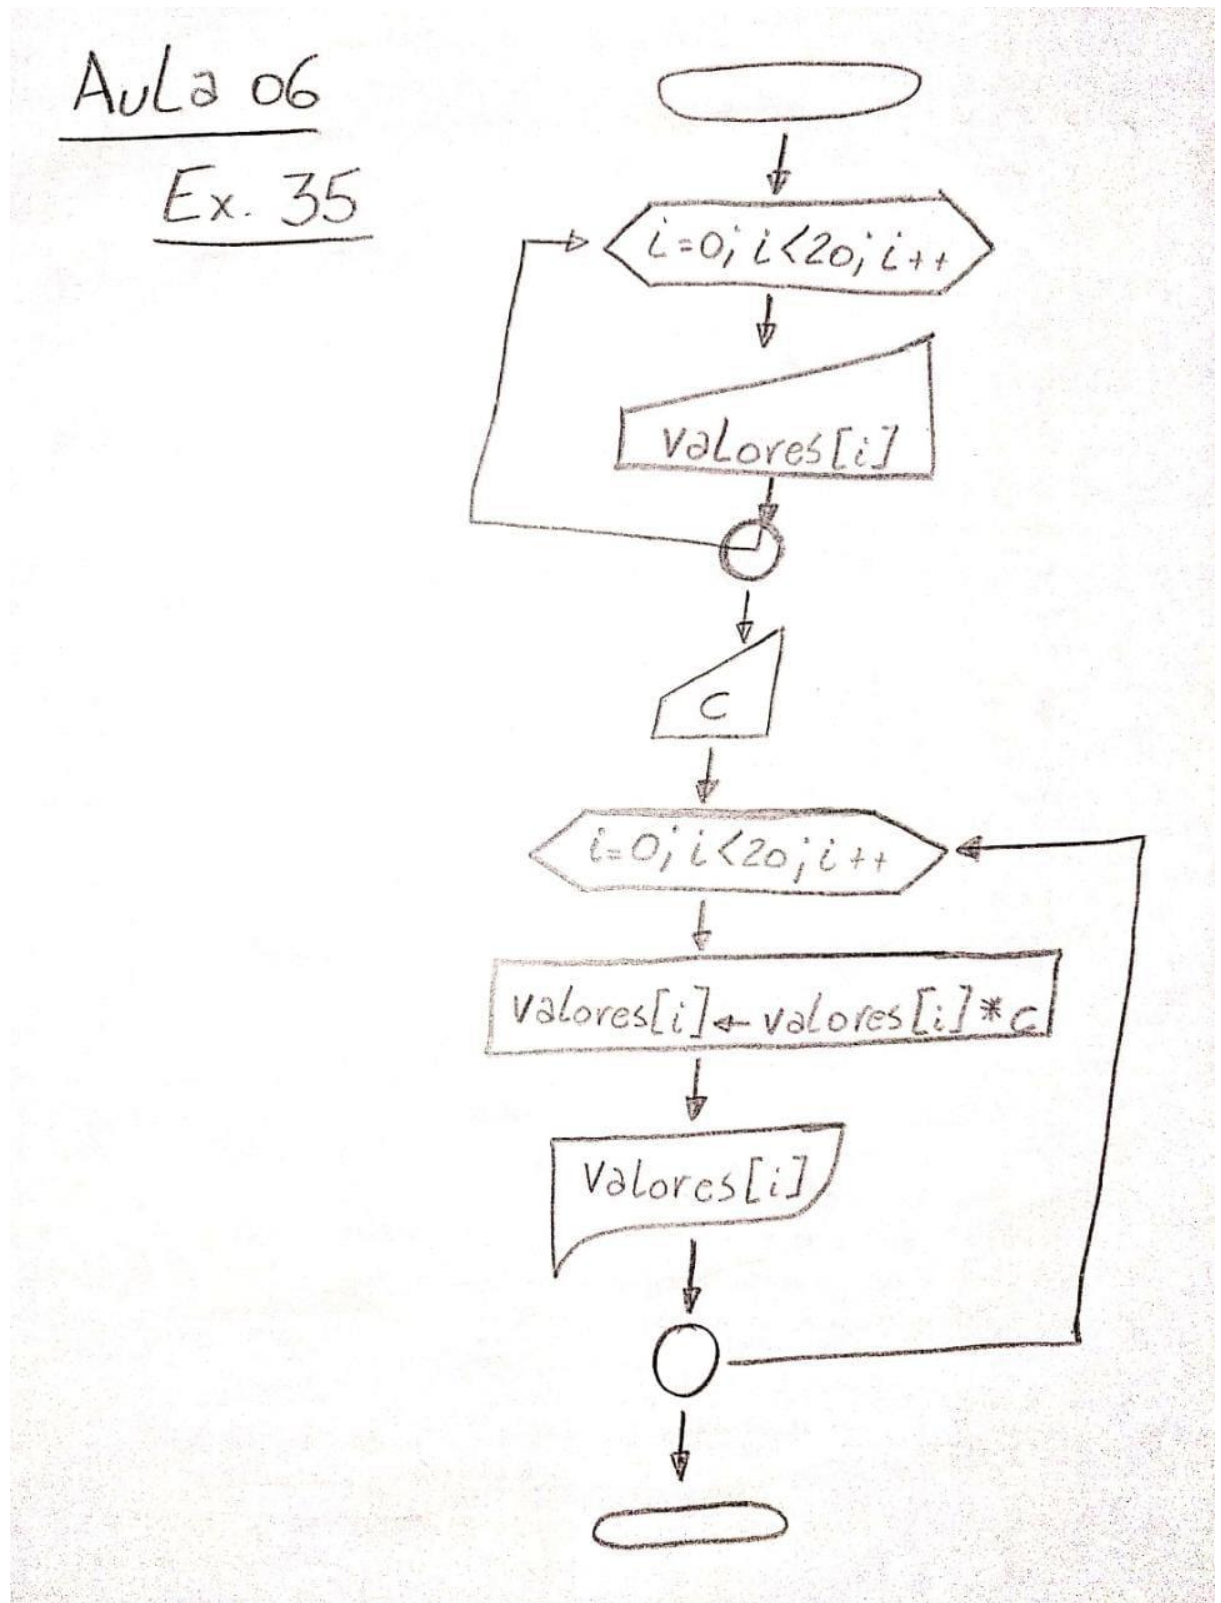 Aula 06
Ex. 35
i=0; i<20; i++
valores[i]
c
i=0; i<20; i++
valores[i]←valores[i]*c
valores[i]